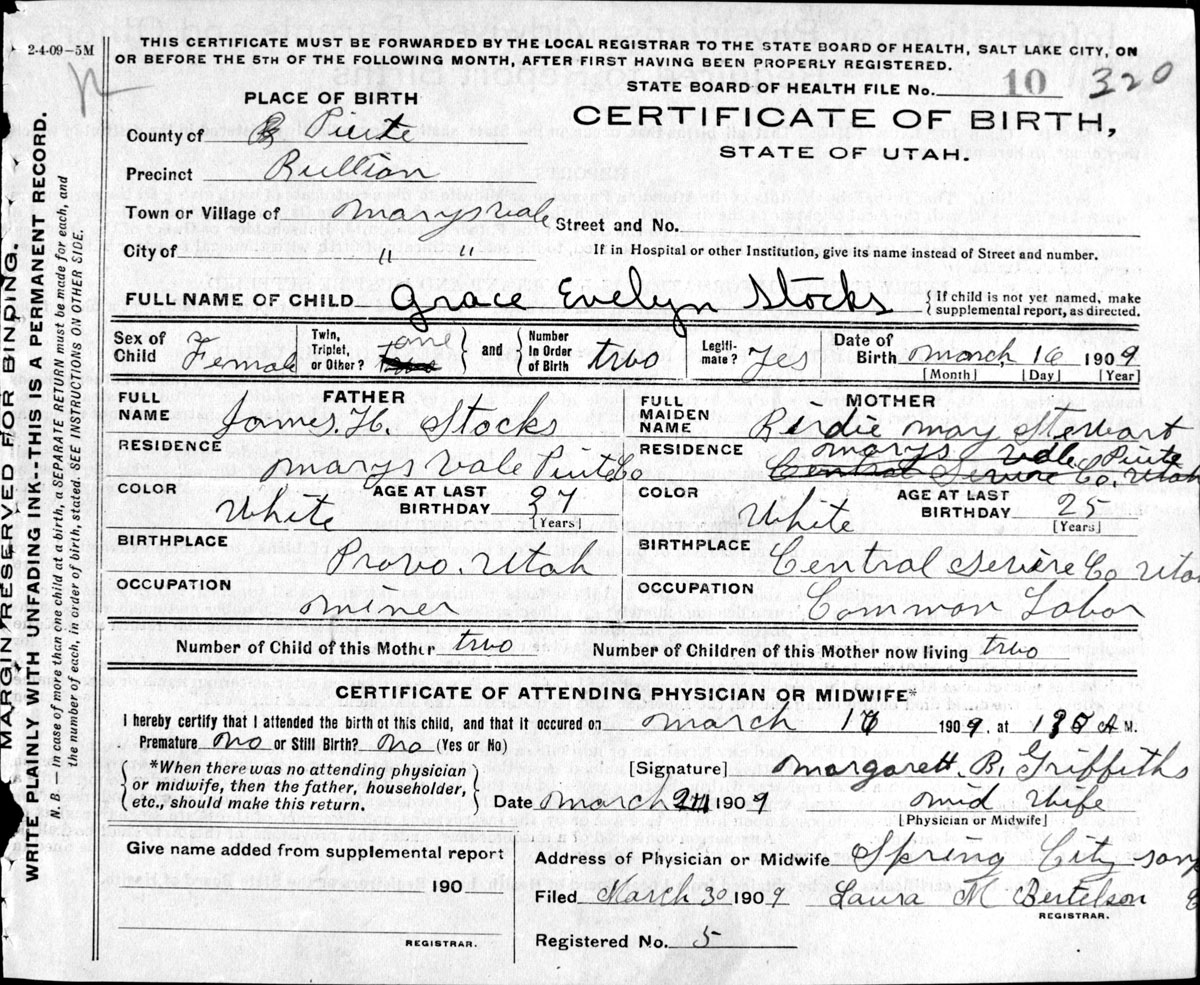 2-4-09-5M
THIS CERTIFICATE MUST BE FORWARDED BY THE LOCAL REGISTRAR TO THE STATE BOARD OF HEALTH, SALT LAKE CITY, ON
OR BEFORE THE 5TH OF THE FOLLOWING MONTH, AFTER FIRST HAVING BEEN PROPERLY REGISTERED.
STATE BOARD OF HEALTH FILE No. 10 320
PLACE OF BIRTH
CERTIFICATE OF BIRTH,
STATE OF UTAH.
County of Piute
Precinct Bullion
Town or Village of Marysvale Street and No.
City of " " If in Hospital or other Institution, give its name instead of Street and number.
FULL NAME OF CHILD Grace Evelyn Stocks {If child is not yet named, make supplemental report, as directed.
Sex of Child Female Twin, Triplet, or Other? one } and { Number In Order of Birth two Legiti-mate? Yes Date of Birth March 16 1909
[Month] [Day] [Year]
FATHER
FULL NAME James. H. Stocks
RESIDENCE Marys vale Piute Co
COLOR White AGE AT LAST BIRTHDAY 27 [Years]
BIRTHPLACE Provo. Utah
OCCUPATION Miner
MOTHER
FULL MAIDEN NAME Birdie May Stewart
RESIDENCE Marys vale Piute
Central Sevire Co, Utah
COLOR White AGE AT LAST BIRTHDAY 25 [Years]
BIRTHPLACE Central Sevire Co Utah
OCCUPATION Common Labor
Number of Child of this Mother two Number of Children of this Mother now living two
CERTIFICATE OF ATTENDING PHYSICIAN OR MIDWIFE*
I hereby certify that I attended the birth of this child, and that it occured on March 16 1909. at A M.
Premature No or Still Birth? No (Yes or No)
{*When there was no attending physician
or midwife, then the father, householder,
etc., should make this return.}
[Signature] Margarett. B. Griffiths
Date March 1909 Mid Wife
[Physician or Midwife]
Give name added from supplemental report
190
REGISTRAR.
Address of Physician or Midwife Spring City
Filed March 30 1909 Laura M Bertelson
REGISTRAR.
Registered No. 5
MARGIN RESERVED FOR BINDING.
WRITE PLAINLY WITH UNFADING INK--THIS IS A PERMANENT RECORD.
N. B.—In case of more than one child at a birth, a SEPARATE RETURN must be made for each, and
the number of each, in order of birth, stated. SEE INSTRUCTIONS ON OTHER SIDE.